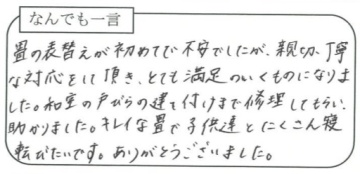 なんでも一言
畳の表替えが初めてで不安でしたが、親切、丁寧
な対応をして頂き、とても満足のいくものになりま
した。和室の戸びらの建て付けまで修理してもらい、
助かりました。キレイな畳で子供達とたくさん寝
転びたいです。ありがとうございました。